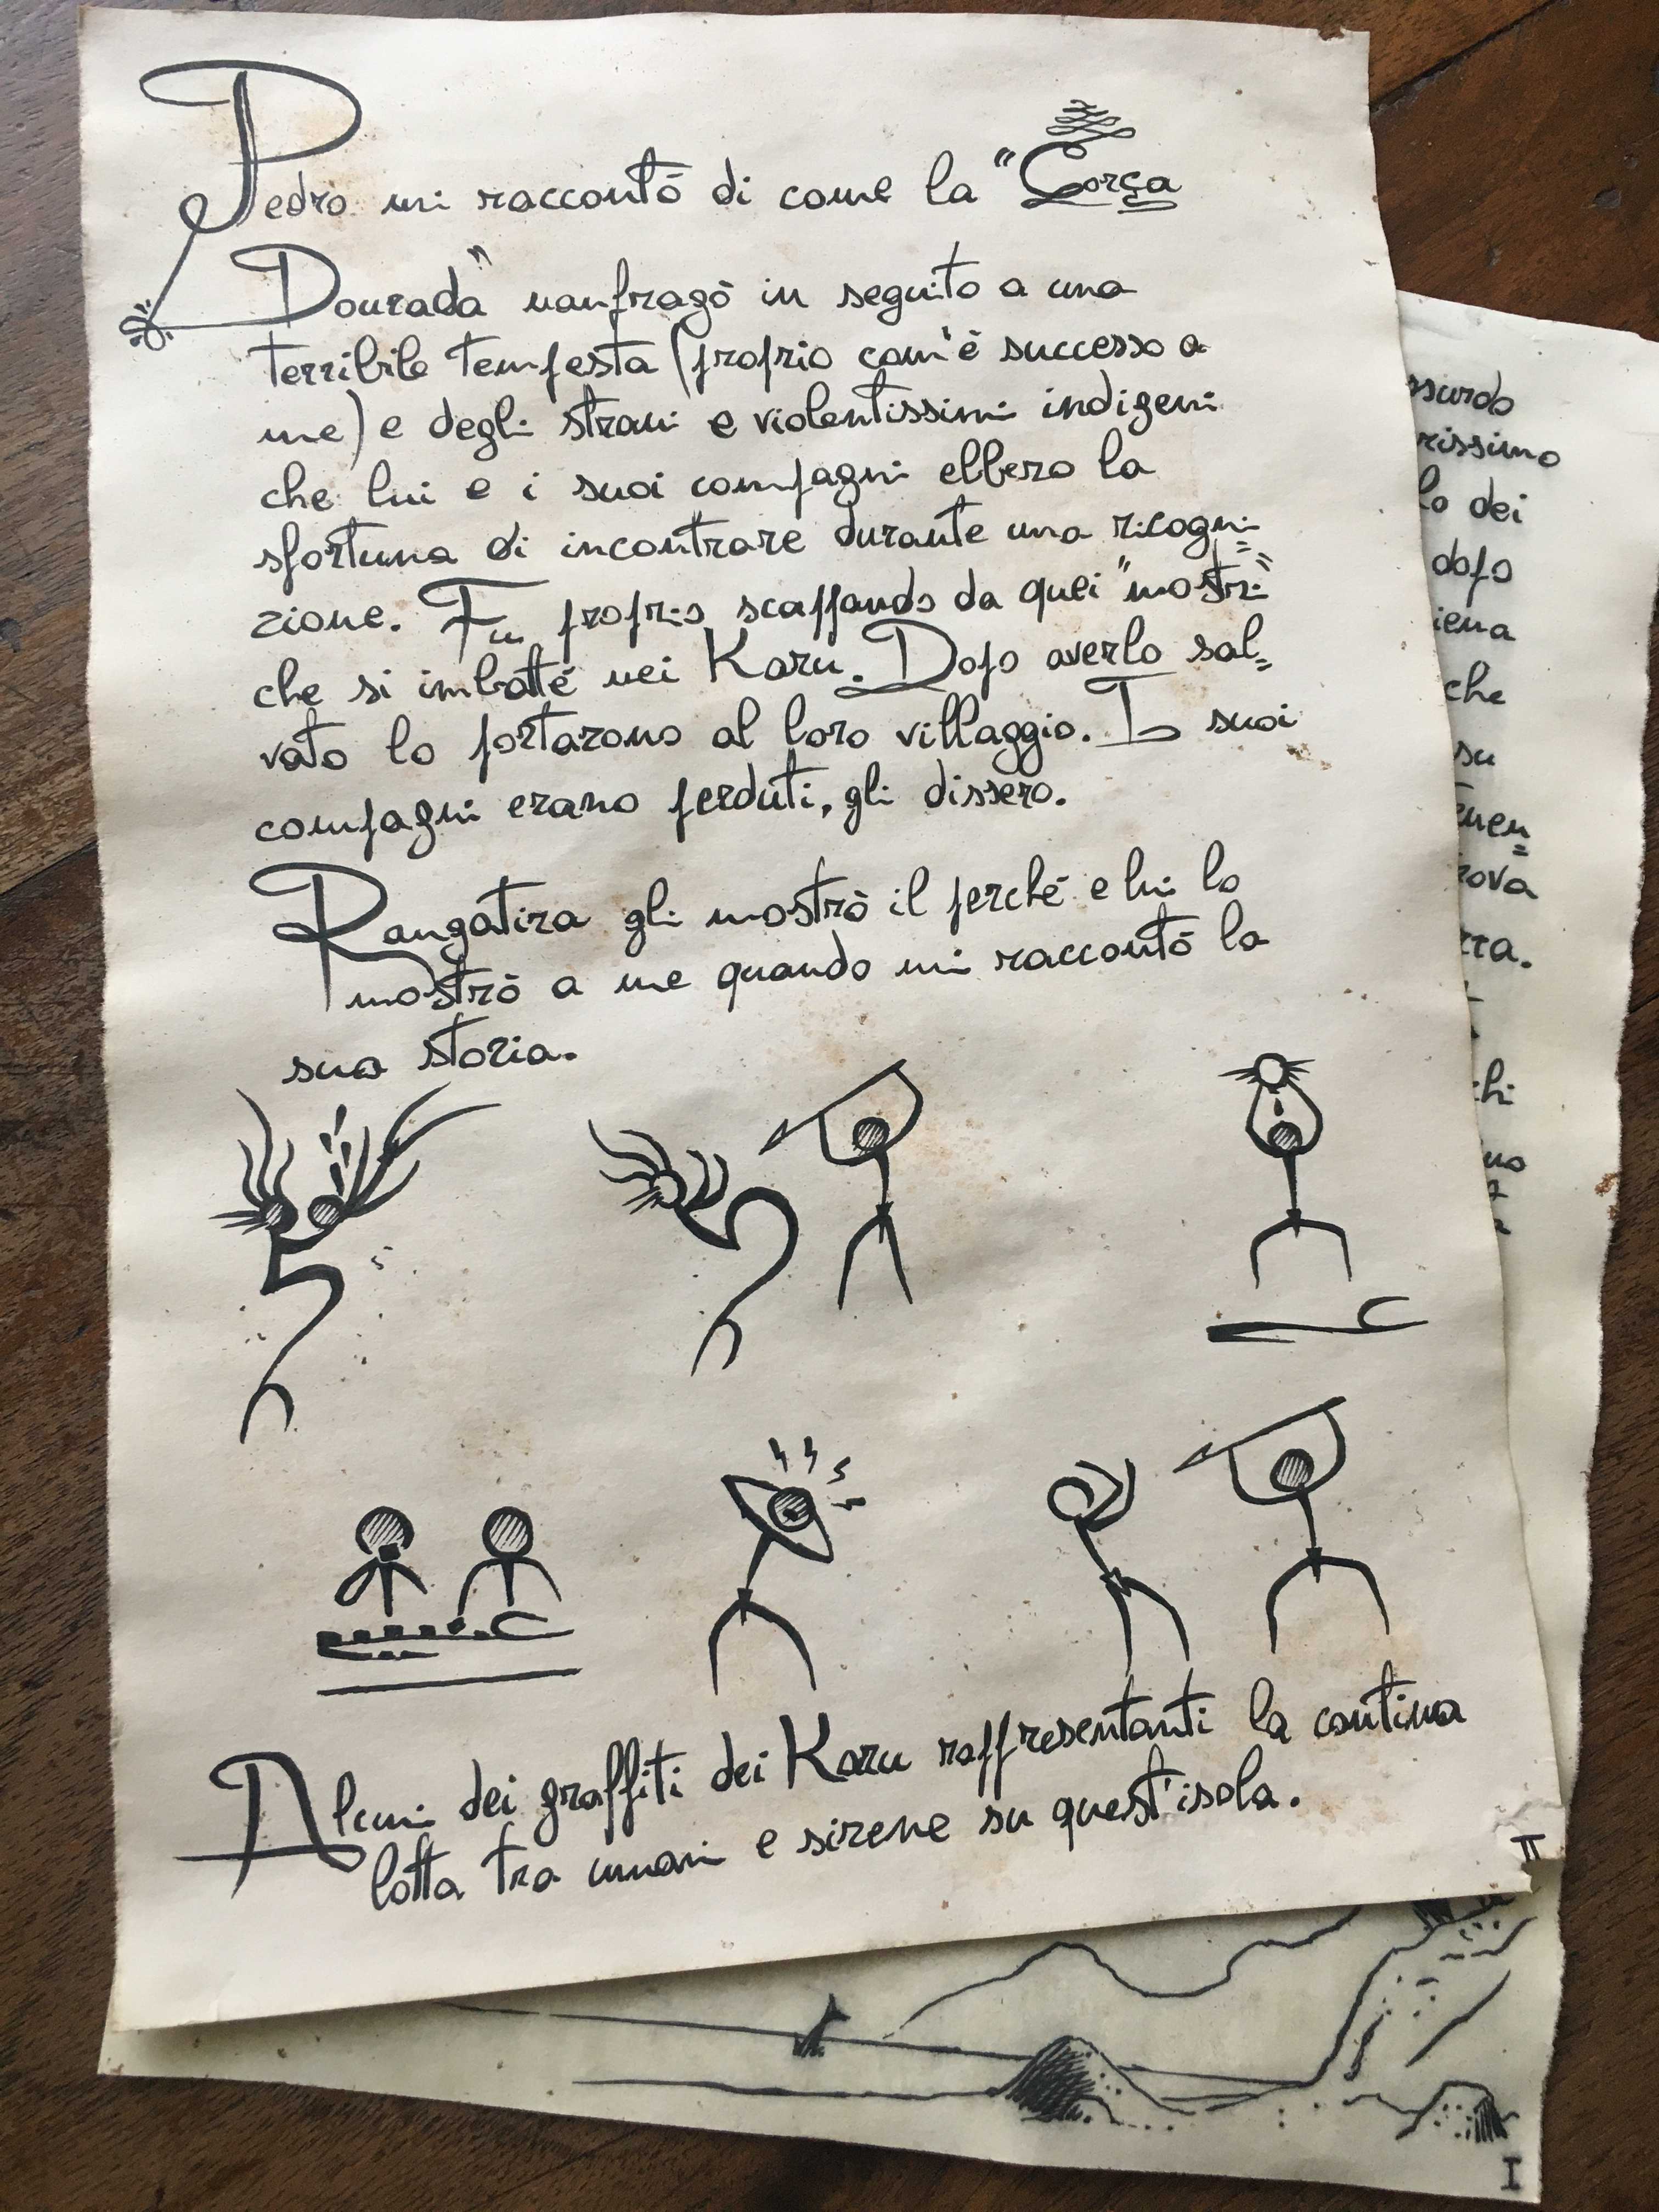 Pedro mi raccontò di come la "Corça
Dourada" naufragò in seguito a una
terribile tempesta (proprio com'è successo a
me) e degli strani e violentissimi indigeni
che lui e i suoi compagni ebbero la
sfortuna di incontrare durante una ricogni=
zione. Fu proprio scappando da quei "mostri"
che si imbatté nei Karu. Dopo averlo sal=
vato lo portarono al loro villaggio. I suoi
compagni erano perduti, gli dissero.
Rangatira gli mostrò il perché e lui lo
mostrò a me quando mi raccontò la
sua storia.
Alcuni dei graffiti dei Karu raffresentanti la continua
lotta tra umani e sirene su quest'isola.
II
ssurdo
rissimo
lo dei
dopo
iena
che
su
enen=
rova
rra.
chi
I